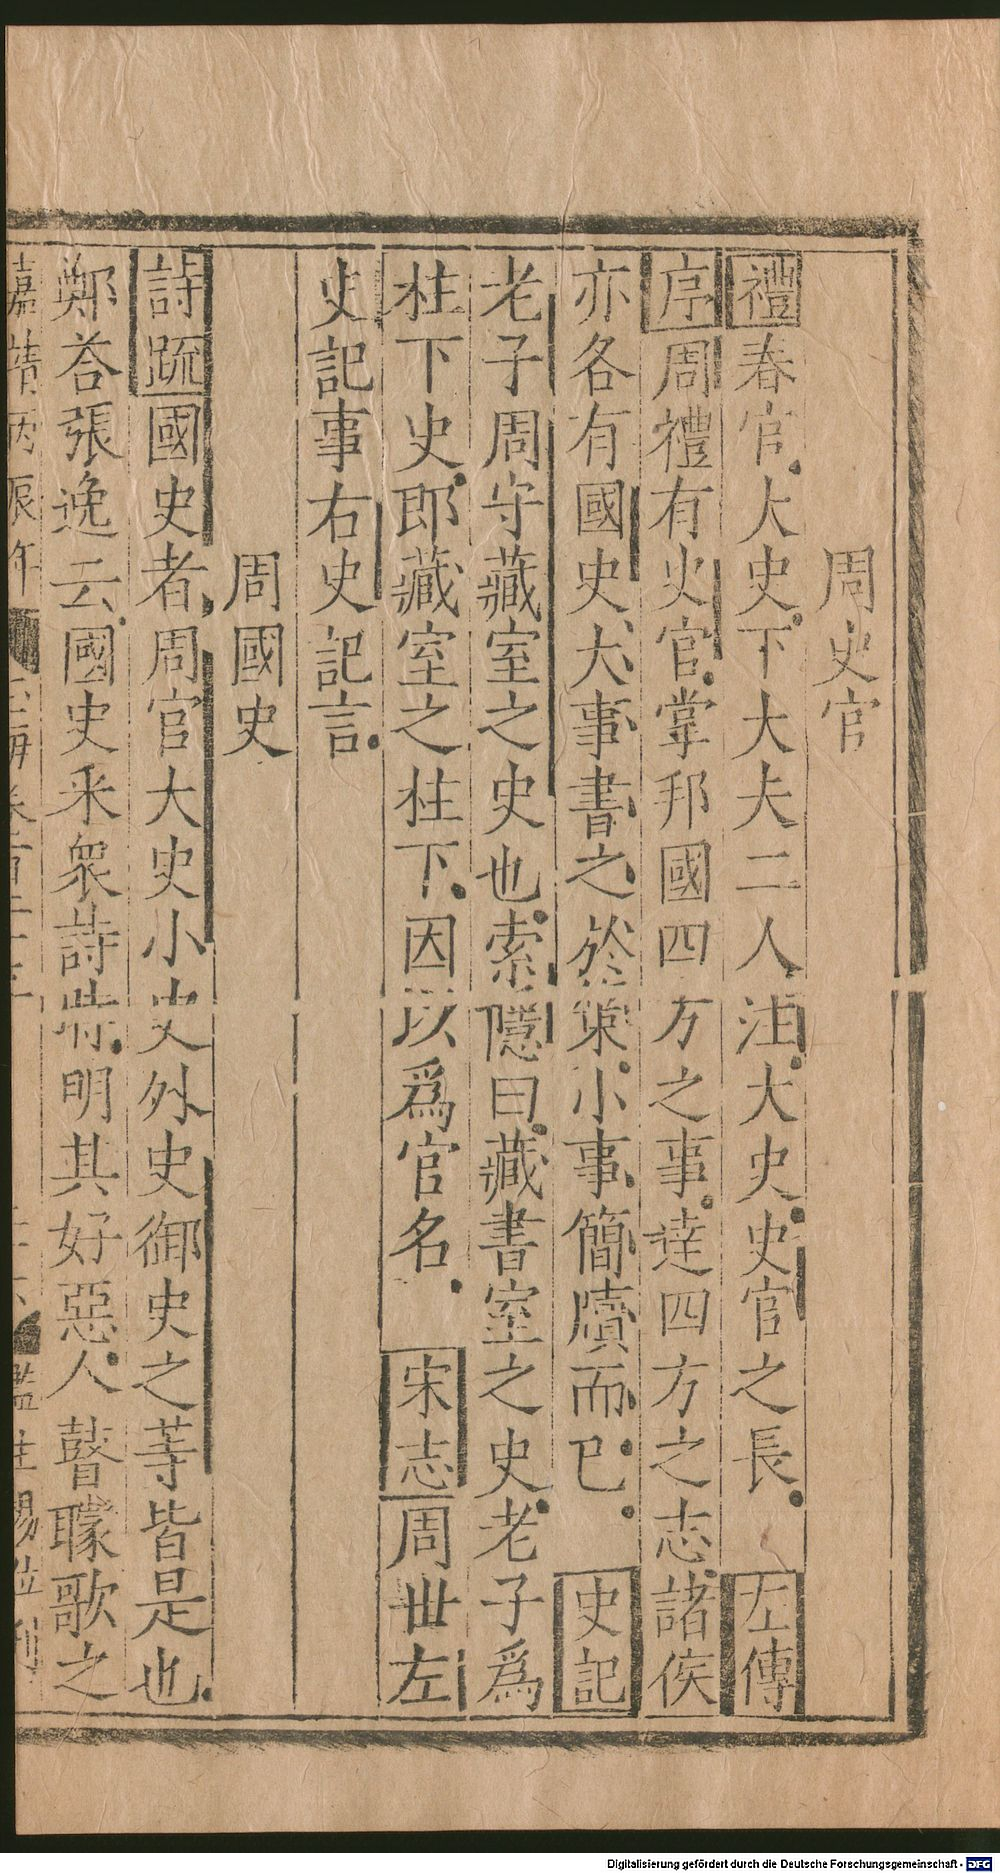 周史官
禮春官大史下大夫二人注大史史官之長 左傳
序周禮有史官掌邦國四方之事達四方之志諸侯
亦各有國史大事書之於策小事簡牘而已 史記
老子周守藏室之史也索隱曰藏書室之史老子爲
柱下史即藏室之柱下因以爲官名 宋志周世左
史記事右史記言
周國史
詩疏國史者周官大史小史外史御史之等皆是也
鄭荅張逸云國史采衆詩時明其好惡人瞽矇歌之
嘉靖丙辰年
Digitalisierung gefördert durch die Deutsche Forschungsgemeinschaft - DFG